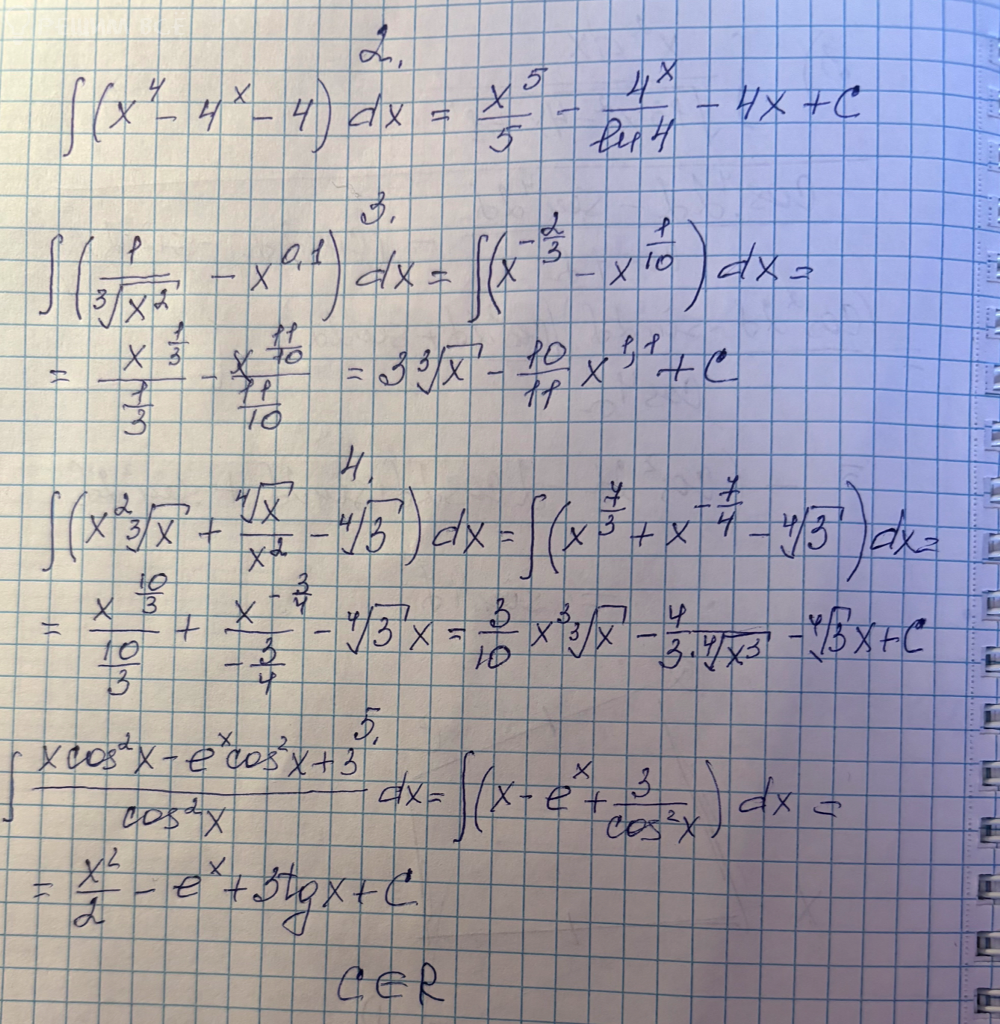 2.
∫(x⁴ - 4ˣ - 4) dx = x⁵/5 - 4ˣ/ln 4 - 4x + C
3.
∫(1/∛(x²) - x^(0,1)) dx = ∫(x^(-2/3) - x^(1/10)) dx =
= x^(1/3)/(1/3) - x^(11/10)/(11/10) = 3∛x - 10/11 x^(1,1) + C
4.
∫(x² ∛x + ∜x/x² - ∜3) dx = ∫(x^(7/3) + x^(-7/4) - ∜3) dx =
= x^(10/3)/(10/3) + x^(-3/4)/(-3/4) - ∜3 x = 3/10 x³ ∛x - 4/(3·∜(x³)) - ∜3 x + C
5.
∫ (x cos²x - eˣ cos²x + 3)/(cos²x) dx = ∫(x - eˣ + 3/cos²x) dx =
= x²/2 - eˣ + 3tgx + C
C ∈ R